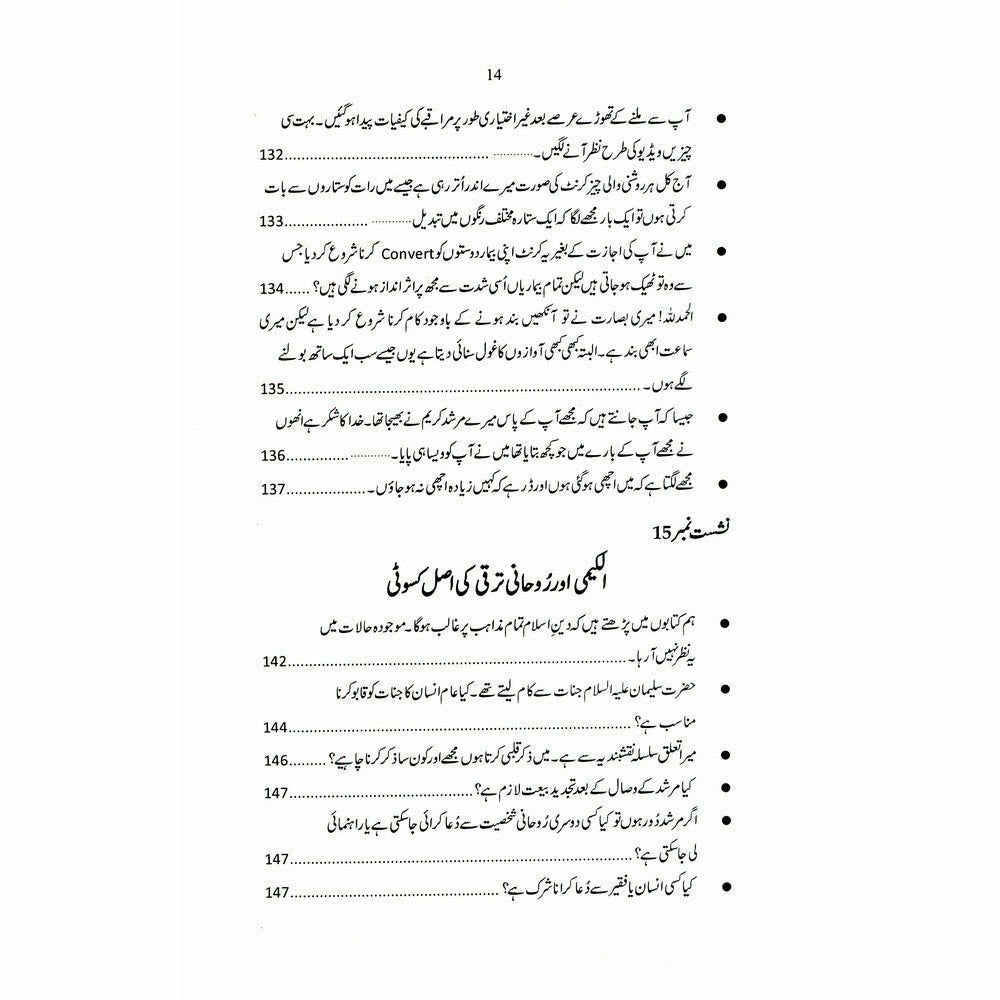 14
• آپ سے ملنے کے تھوڑے عرصے بعد غیر اختیاری طور پر مراقبے کی کیفیات پیدا ہو گئیں۔ بہت سی
چیزیں ویڈیو کی طرح نظر آنے لگیں۔............132
• آج کل ہر روشنی والی چیز کرنٹ کی صورت میرے اندر اُتر رہی ہے جیسے میں رات کو ستاروں سے بات
کرتی ہوں تو ایک بار مجھے لگا کہ ایک ستارہ مختلف رنگوں میں تبدیل............133
• میں نے آپ کی اجازت کے بغیر یہ کرنٹ اپنی بیمار دوستوں کو Convert کرنا شروع کر دیا جس
سے وہ تو ٹھیک ہو جاتی ہیں لیکن تمام بیماریاں اُسی شدت سے مجھ پر اثر انداز ہونے لگی ہیں؟......134
• الحمدللہ! میری بصارت نے تو آنکھیں بند ہونے کے باوجود کام کرنا شروع کر دیا ہے لیکن میری
سماعت ابھی بند ہے۔ البتہ کبھی کبھی آوازوں کا غول سنائی دیتا ہے یوں جیسے سب ایک ساتھ بولنے
لگے ہوں۔............135
• جیسا کہ آپ جانتے ہیں کہ مجھے آپ کے پاس میرے مرشد کریم نے بھیجا تھا۔ خدا کا شکر ہے انھوں
نے مجھے آپ کے بارے میں جو کچھ بتایا تھا میں نے آپ کو ویسا ہی پایا۔............136
• مجھے لگتا ہے کہ میں اچھی ہو گئی ہوں اور ڈر ہے کہ کہیں زیادہ اچھی نہ ہو جاؤں۔............137
نشست نمبر 15
الکیمی اور رُوحانی ترقی کی اصل کسوٹی
• ہم کتابوں میں پڑھتے ہیں کہ دینِ اسلام تمام مذاہب پر غالب ہوگا۔ موجودہ حالات میں
یہ نظر نہیں آ رہا۔............142
• حضرت سلیمان علیہ السلام جنات سے کام لیتے تھے۔ کیا عام انسان کا جنات کو قابو کرنا
مناسب ہے؟............144
• میرا تعلق سلسلہ نقشبندیہ سے ہے۔ میں ذکر قلبی کرتا ہوں مجھے اور کون سا ذکر کرنا چاہیے؟.........146
• کیا مرشد کے وصال کے بعد تجدید بیعت لازم ہے؟............147
• اگر مرشد دُور ہوں تو کیا کسی دوسری رُوحانی شخصیت سے دُعا کرائی جا سکتی ہے یا راہنمائی
لی جا سکتی ہے؟............147
• کیا کسی انسان یا فقیر سے دُعا کرانا شرک ہے؟............147